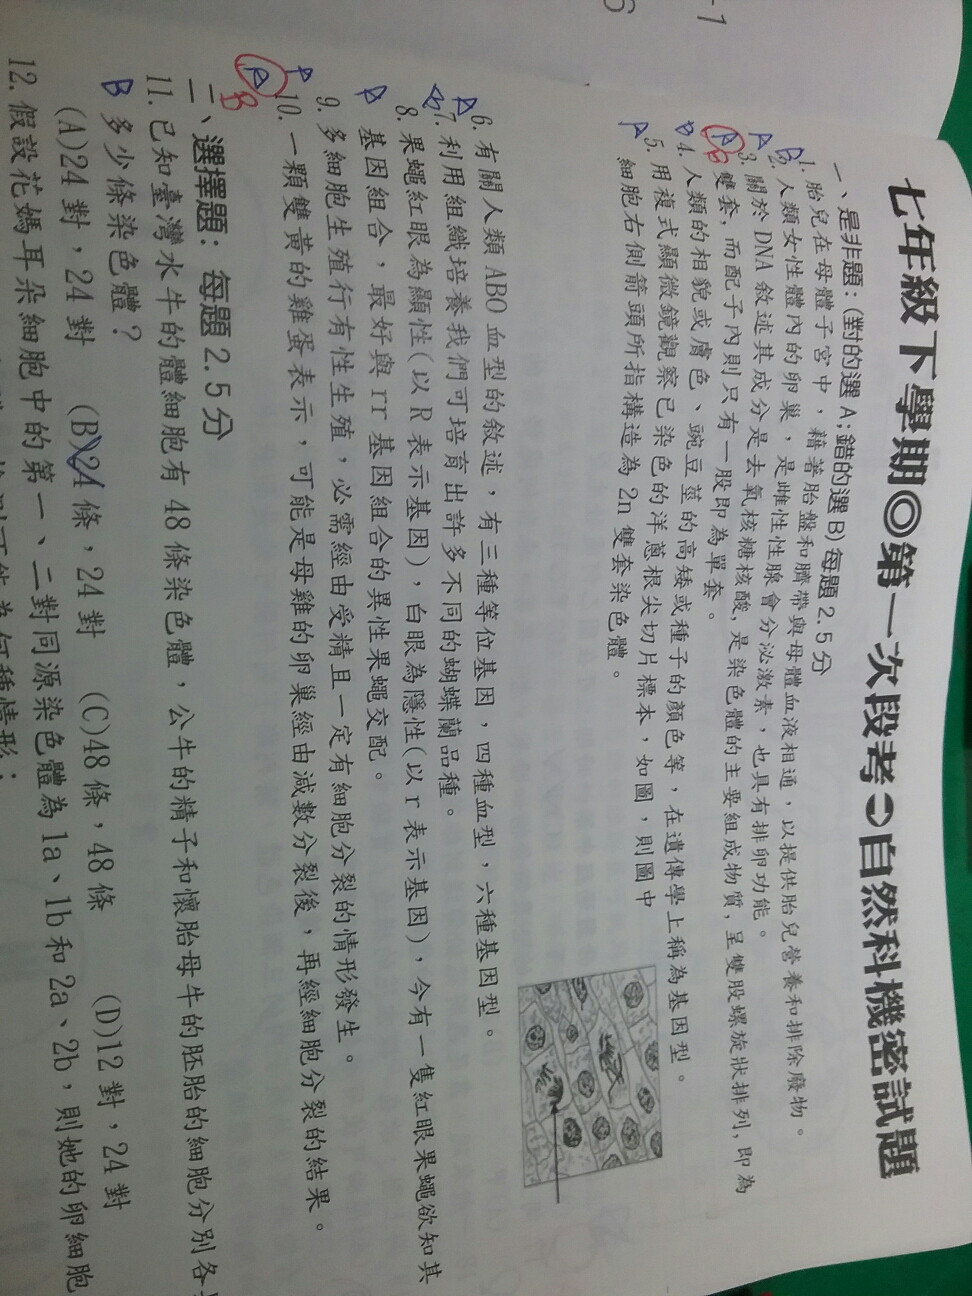 -1
七年級下學期◎第一次段考⊃自然科機密試題
一、是非題：(對的選 A；錯的選 B)每題 2.5 分
B 1. 胎兒在母體子宮中，藉著胎盤和臍帶與母體血液相通，以提供胎兒營養和排除廢物。
A 2. 人類女性體內的卵巢，是雌性性腺會分泌激素，也具有排卵功能。
A B 3. 關於 DNA 敘述其成分是去氧核糖核酸，是染色體的主要組成物質，呈雙股螺旋狀排列，即為
雙套，而配子內則只有一股即為單套。
B 4. 人類的相貌或膚色、豌豆莖的高矮或種子的顏色等，在遺傳學上稱為基因型。
A 5. 用複式顯微鏡觀察已染色的洋蔥根尖切片標本，如圖，則圖中
細胞右側箭頭所指構造為 2n 雙套染色體。
A 6. 有關人類 ABO 血型的敘述，有三種等位基因，四種血型，六種基因型。
B 7. 利用組織培養我們可培育出許多不同的蝴蝶蘭品種。
8. 果蠅紅眼為顯性(以 R 表示基因)，白眼為隱性(以 r 表示基因)，今有一隻紅眼果蠅欲知其
基因組合，最好與 rr 基因組合的異性果蠅交配。
9. 多細胞生殖行有性生殖，必需經由受精且一定有細胞分裂的情形發生。
A B 10. 一顆雙黃的雞蛋表示，可能是母雞的卵巢經由減數分裂後，再經細胞分裂的結果。
二、選擇題：每題 2.5 分
11. 已知臺灣水牛的體細胞有 48 條染色體，公牛的精子和懷胎母牛的胚胎的細胞分別各
B 多少條染色體？
(A)24 對，24 對 (B)24 條，24 對 (C)48 條，48 條 (D)12 對，24 對
12. 假設花媽耳朵細胞中的第一、二對同源染色體為 1a、1b 和 2a、2b，則她的卵細胞
可能為何種情形：